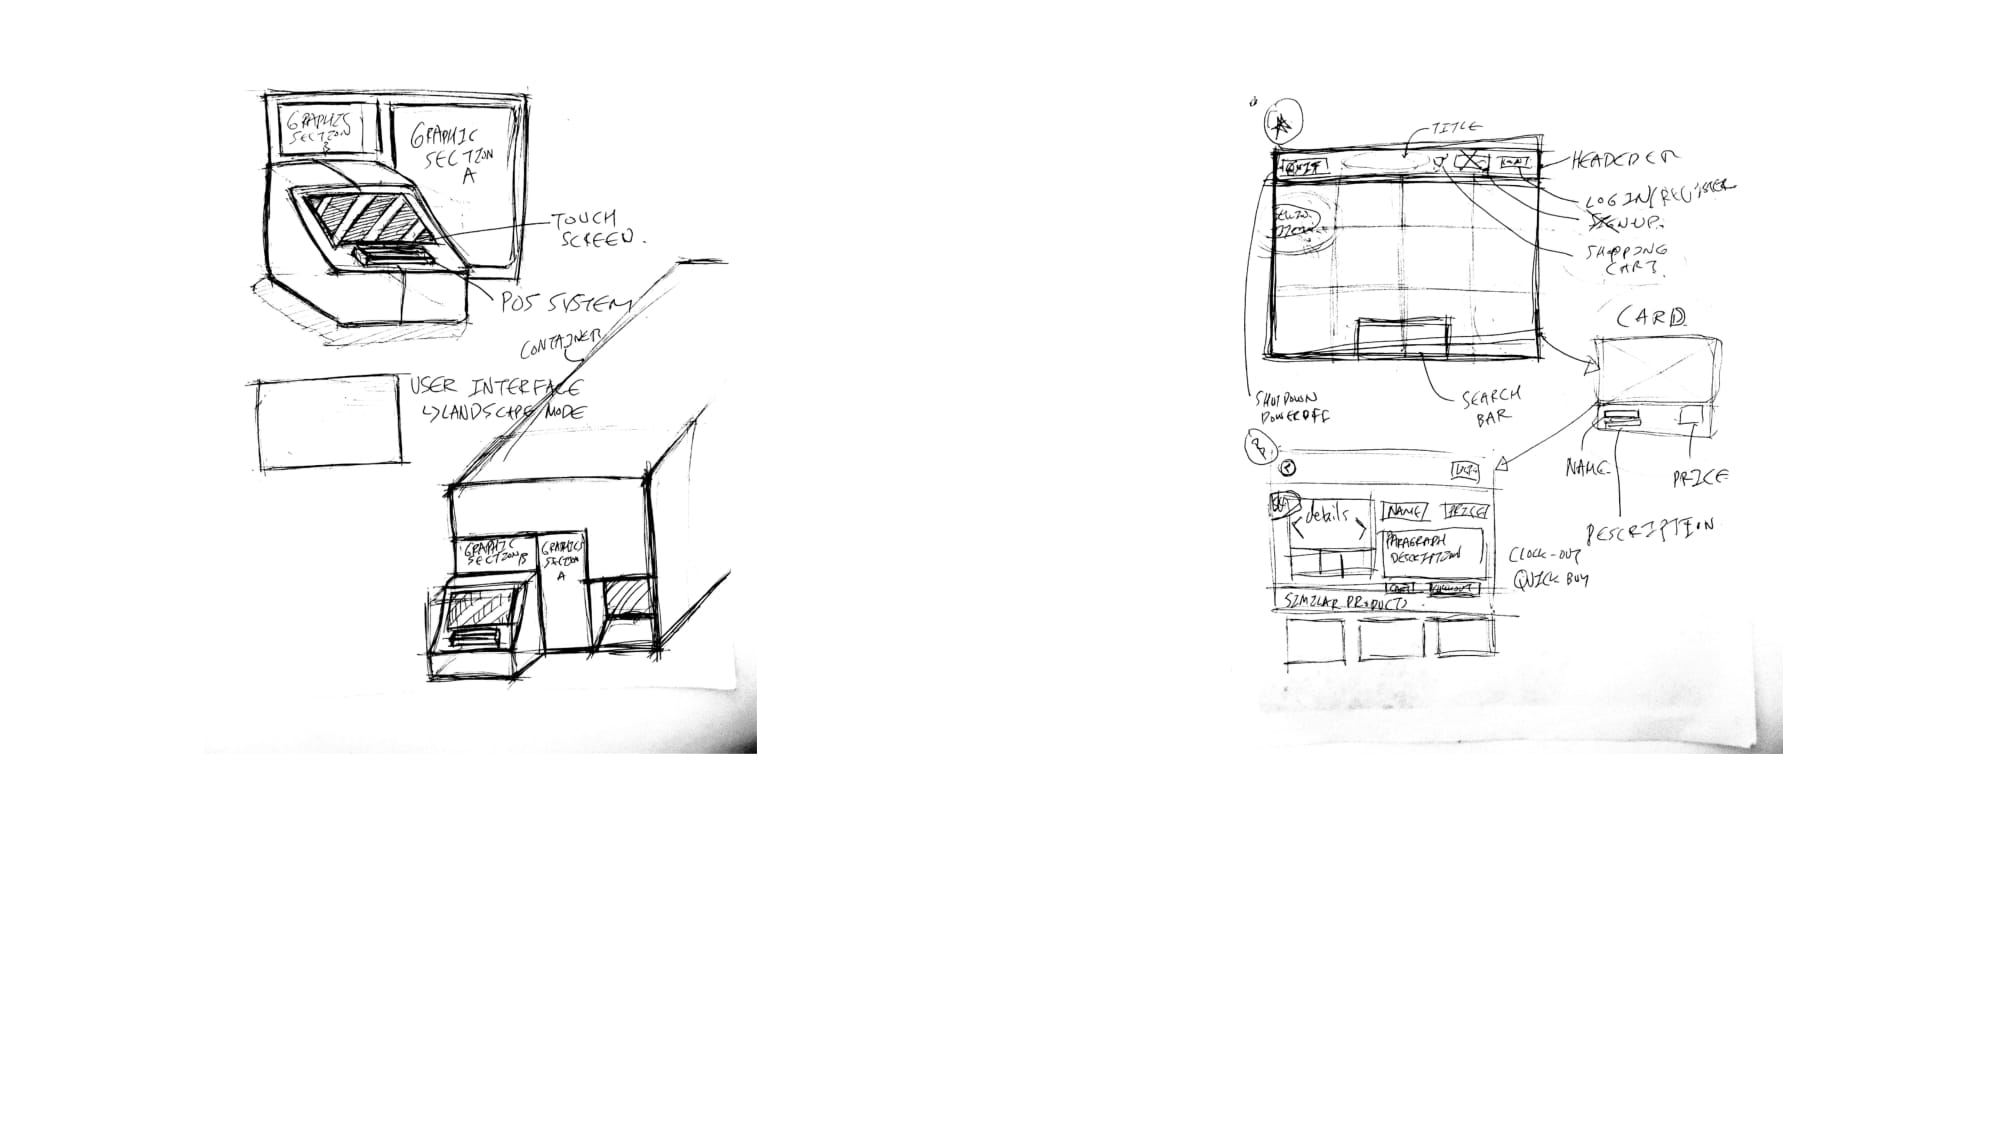 GRAPHICS
SECTION
B
GRAPHIC
SECTION
A
TOUCH
SCREEN.
POS SYSTEM
CONTAINER
USER INTERFACE
↳LANDSCAPE MODE
GRAPHIC
SECTION B
GRAPHICS
SECTION
A
TITLE
HEADEDER
LOGIN/REGISTER
SIGN-UP.
SHOPPING
CART.
CARD
SHUTDOWN
POWEROFF
SEARCH
BAR
NAME
PRICE
DESCRIPTION
details
NAME
PRICE
PARAGRAPH
DESCRIPTION
CLOCK-OUT
QUICK BUY
CART
SIMILAR PRODUCTS